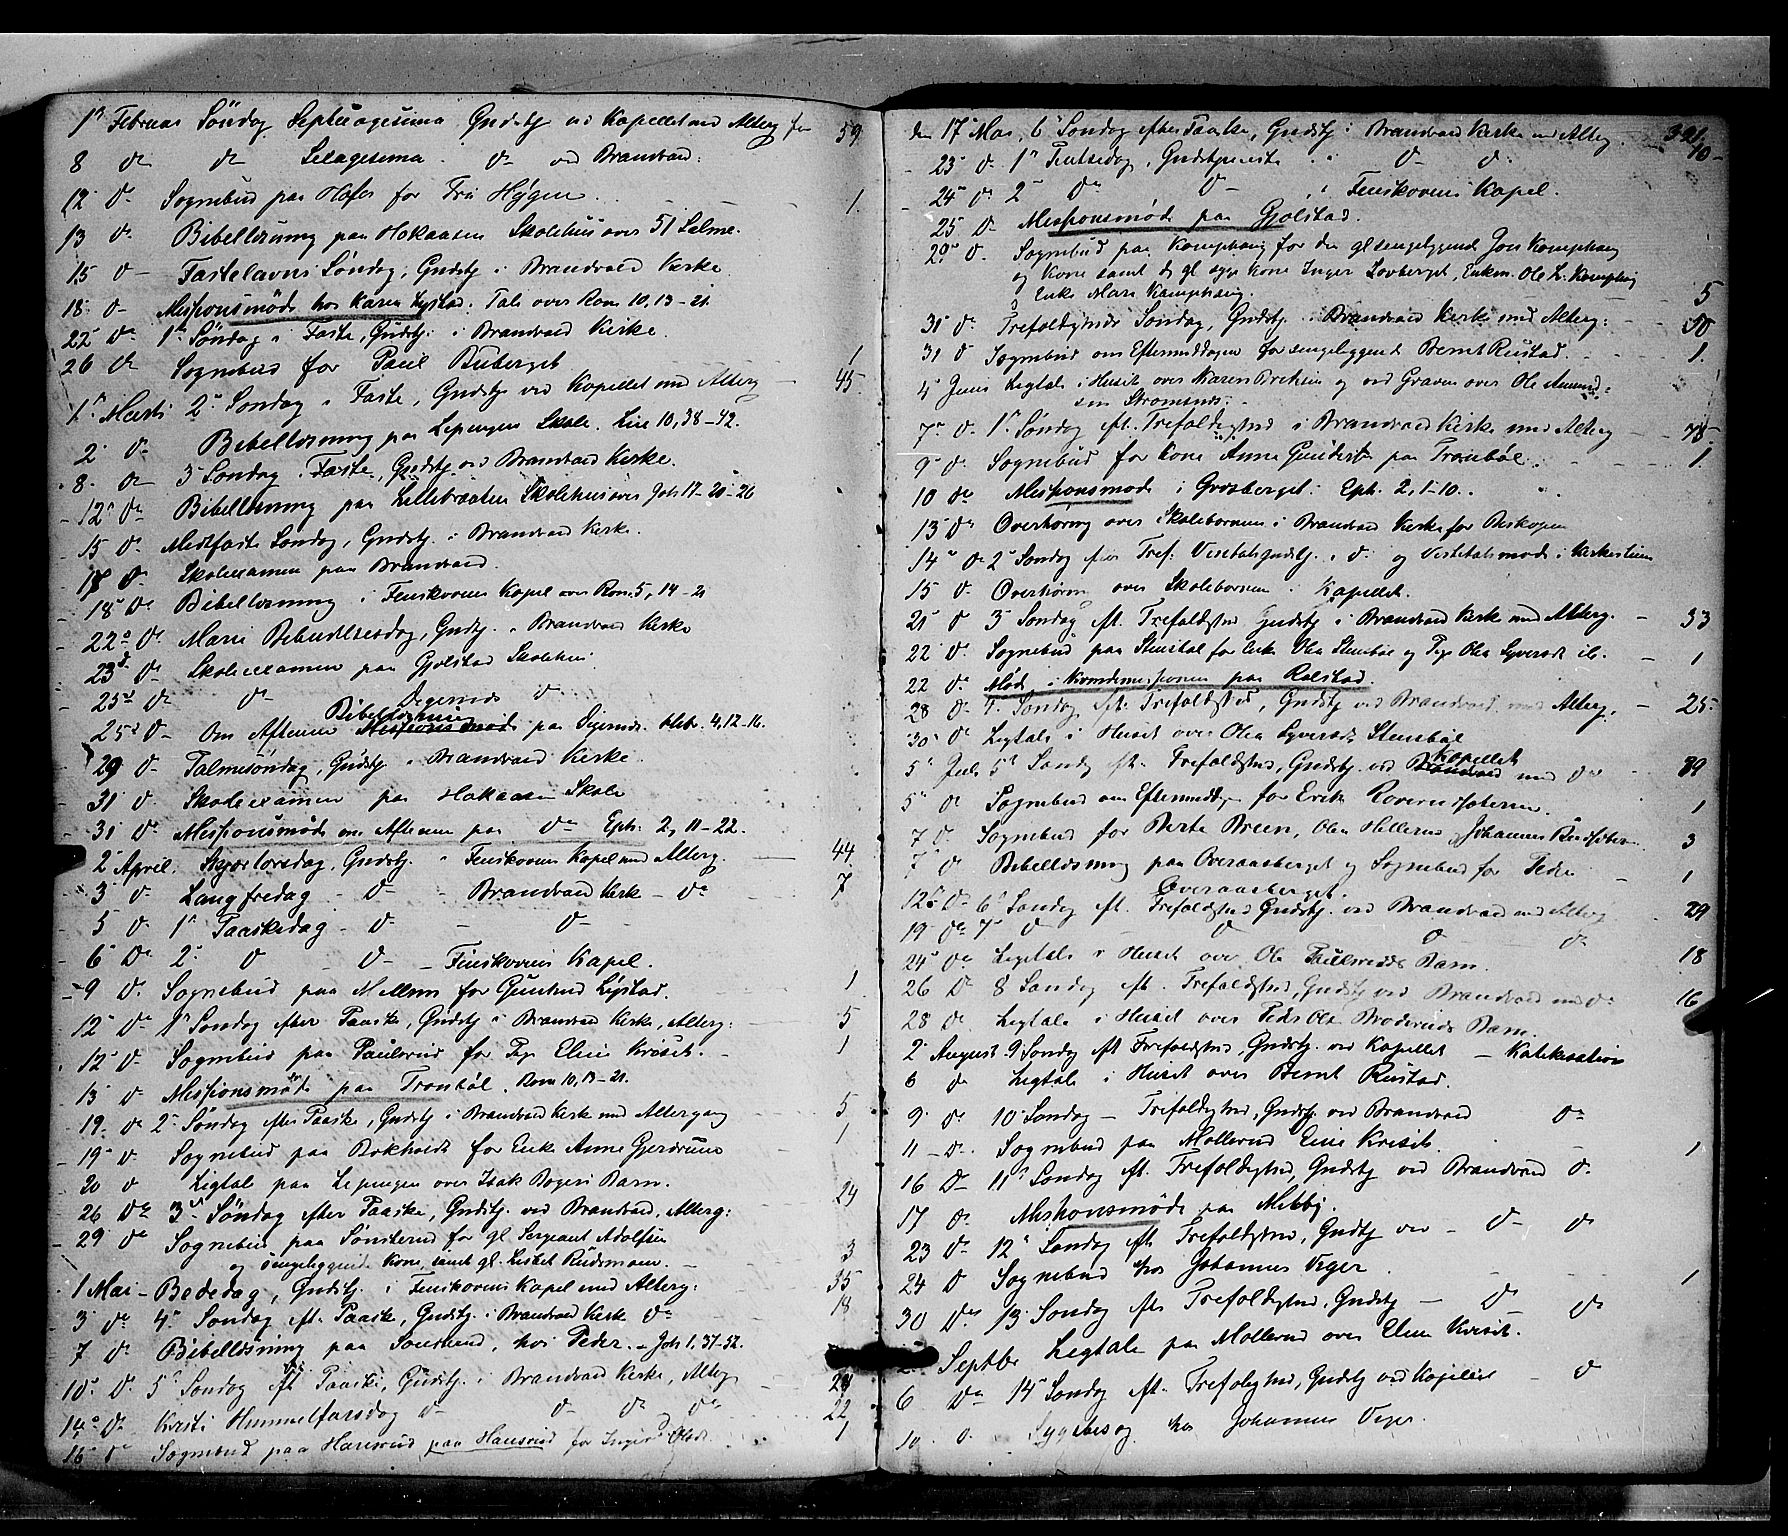 1ste Februar Söndag Septuagesima Gndstj ved Kapellet med Alterg for 59
8 do do Sexagesima do ved Brandvold.
12 do Sognebud paa Hofos for Fru Hÿgen 1
13 do Bibellæsning paa Hokaasen Skolehus over 51 Salme.
15 do Fastelavns Söndag, Gndstj i Brandvold Kirke
18 do Missionsmöde hos Karen Lystad. Tale over Rom 10, 13-21
22 do 1ste Söndag i Faste, Gudstj. i Brandvold Kirke.
26 do Sognebud for Paul Buberget 1
1ste Marts 2den Söndag i Faste, Gndstj ved Kapellet med Alterg 45
2 do Bibellæsning paa Lepingen Skole. Luc 10, 38-42.
8 do 3 Söndag i Faste, Gndstj ved Brandvold Kirke.
12 do Bibellæsning paa Lillebraaten Skolehus over Joh 17-20-26
15 do Midfaste Söndag, Gndstj. i Brandvold Kirke.
17 do Skoleexamen paa Brandvold.
18 do Bibellæsning i Finskovens Kapel over Rom. 5, 14-21
22 do Marie Bebudelsesdag, Gndtj. i Brandvold Kirke
23d do Skoleexamen paa Gjölstad Skolehus.
25d do do Digernæs do
25d do Om Aftenen Bibellæsning paa Digernæs. Hebr. 4, 12-16.
29 do Palmesöndag, Gndstj i Brandvold Kirke.
31 do Skoleexamen paa Hokaasen Skole
31 do Missionsmöde om Aftenen paa do Eph. 2, 11-22.
2 April. Skjærtorsdag, Gndstj. i Finskovens Kapel med Alterg. 44
3 do Langfredag - do - Brandvold Kirke - do 7
5 do 1ste Paaskedag - do - do -
6 do 2. do - do - Finskovens Kapel.
9 do Sognebud paa Mellem for Gunhild Lystad. 1
12 do 1ste Söndag efter Paaske, Gndstj i Brandvold Kirke, Alterg: 5
12 do Sognebud paa Paulsrud for Pige Eline Krisit. 1
13 do Missionsmöde paa Tronböl. Rom 10, 13-21.
19 do 2 Söndag efter Paaske, Gndstj i Brandvold Kirke med Altergang 5
19 do Sognebud paa Bokholdt for Enke Anne Gjerdrum 1
20 do Ligtale paa Lepingen over Isak Bogens Barn.
26 do 3die Söndag efter Paaske, Gndstj. ved Brandvold, Alterg: 24
29 do Sognebud paa Sönsterud for gl Sergeant Adolfsen
og sengeliggende Kone, samt gl. Lisbet Rudsmoen. 3
1 Mai - Bededag, Gndstj. i Finskovens Kapel med Alterg: 35
3 do 4de Söndag eft. Paaske, Gndstj. i Brandvold Kirke do 18
7 do Bibellæsning paa Sonsterud, hos Peder. - Joh 1, 37-52.
10 do 5te Söndag eft Paaske, Gndstj. i Brandvold Kirke, Alterg 20
14 do Kristi Himmelfartsdag do do do do 22
16 do Sognebud paa Hansrud paa Hansrud for Inger Olsdr. 1
den 17 Mai, 6 Söndag efter Paaske, Gndstj i Brandvold Kirke med Alterg. 40
23 do 1ste Pintsedag, Gndstjeneste i do do
24 do 2 do do i Finskovens Kapel.
25 do Missionsmöde paa Gjölstad.
29 do Sognebud paa Kamphoug for den gl sengeliggende Jon Kamphoug
og Kone samt d. gl syge Kone Inger Lovberget, Enkm. Ole L. Kamphoug
og Enke Mari Kamphoug. 5
31 do Trefoldigheds Söndag, Gndstj. i Brandvold Kirke med Alterg: 50
31 do Sognebud om Eftermiddagen for sengeliggende Bernt Rustad. 1.
4 Juni Ligtale i Huset over Karen og ved Graven over Ole Amund-
sen Stromsnæs.
7 do 1ste Söndag eft. Trefoldighed i Brandvold Kirke med Alterg 78
9 do Sognebud for Kone Anne Gundersdr paa Tronböl. 1.
10 do Missionsmöde i Grosberget. Eph. 2, 1-10.
13 do Overhöring over Skolebornene i Brandvold Kirke for Biskopen
14 do 2 Söndag efter Tref: Visitatsgndstj. i do og Visitatsmöde i Kirkestuen
15 do Overhörin over Skolebornene i Kapellet.
21 do 3 Söndag eft. Trefoldighed Gndstj i Brandvold Kirke med Alterg. 33
22 do Sognebud paa Stensböl for Enke Olea Stensböl og Pige Olea Syversdr ib. 1
22 do Möde i Kvindemissionen paa Rolstad.
28 do 4. Söndag eft. Trefoldighed, Gndstj ved Brandvold med Alterg. 25
30 do Ligtale i Huset over Olea Syversdr Stensböl
5 Juli 5te Söndg eft. Trefoldighed, Gndstj. ved Kapellet med do 29
5 do Sognebud om Eftermiddagen for Erik 1
7 do Sognebud for Berte Breen, Olea Hellerud, Johannes 3
7 do Bibellæsning paa Overaasberget og Sognebud for Peder
Overaasberget. 1
12 do 6 Söndag eft. Trefoldighed Gndstj. ved Brandvold med Alterg 29
19 do 7 do do do do
24 do Ligtale i Huset over Ole Paulsruds Barn. 18
26 do 8 Söndag eft. Trefoldighed, Gndstj ved Brandvold med do 16
28 do Ligtale i Huset over Peder Olsen Broderuds Barn.
2 August 9 Söndg eft Trefoldighed, Gndstj. ved Kapellet - Katekisation
6 do Ligtale i Huset over Bernt Rustad.
9 do 10 Söndag - Trefoldighed, Gndstj ved Brandvold do
11 - do Sognebud paa Mollerud Eline Krisit. 1
16 do 11te Söndag eft. Trefoldighed, Gndstj ved Brandvold do
17 do Missionsmöde paa Mebbÿ.
23 do 12te Söndag eft Trefoldighed, Gndtj ved - do do
24 do Sognebud hos Johannes Viger. 1
30 do 13 Söndag eft Trefoldighed, Gndstj - do do
Septbr Ligtale paa Mollerud over Eline Krisit.
6 do 14 Söndag eft. Trefoldighed, Gndstj ved Kapellet - do
10 do Sygebesog hos Johannes Viger.